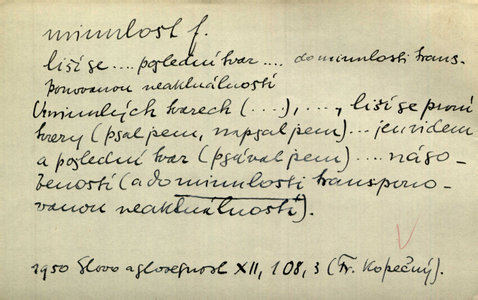 minulost f.
liší se .... poslední tvar .... do minulosti trans-
ponovanou neaktuálností
U minulých tvarech (....), ...., liší se první
tvary (psal jsem, napsal jsem) ... jen videm
a poslední tvar (psával jsem) .... náso-
beností (a do minulosti transpono-
vanou neaktuálností).
1950 Slovo a slovesnost XII, 108, 3 (Fr. Kopečný).